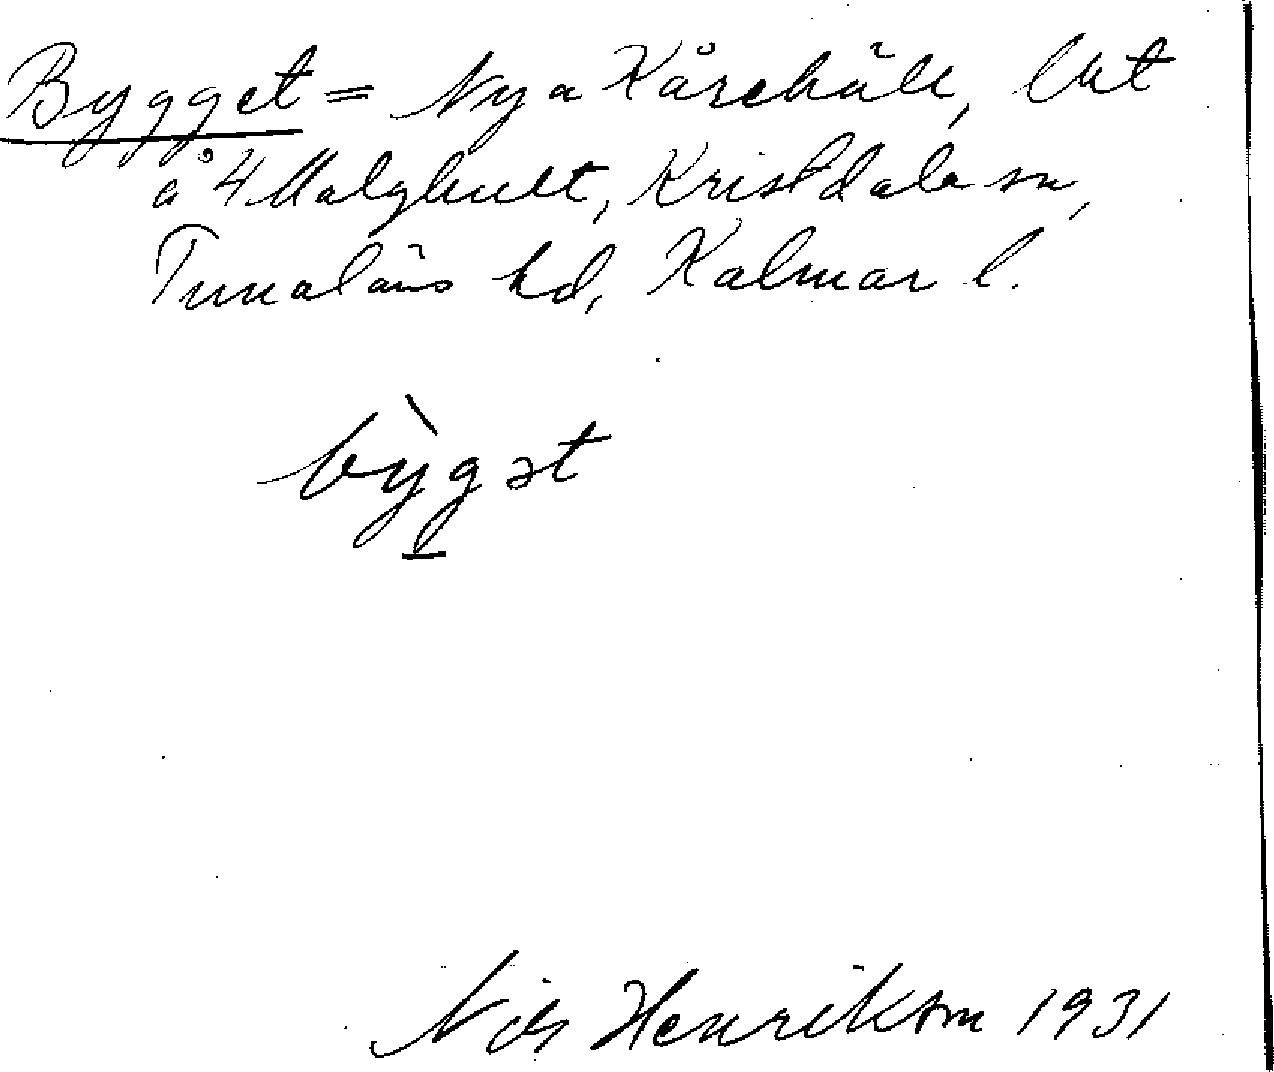 Bygget = Nya Kårehäll, lht
å 4 Malghult, Kristdala sn,
Tunaläns hd, Kalmar l.
bỳgət
Nils Henrikson 1931